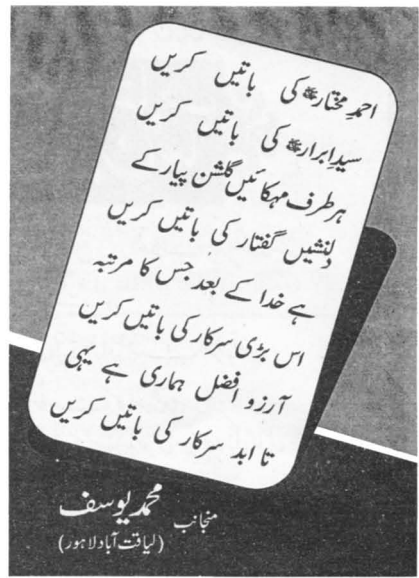 احمدِ مختارﷺ کی باتیں کریں
سیدِ ابرارﷺ کی باتیں کریں
ہر طرف مہکائیں گلشن پیار کے
دلنشیں گفتار کی باتیں کریں
ہے خدا کے بعد جس کا مرتبہ
اس بڑی سرکار کی باتیں کریں
آرزو افضل ہماری ہے یہی
تا ابد سرکار کی باتیں کریں
منجانب محمد یوسف
(لیاقت آباد لاہور)